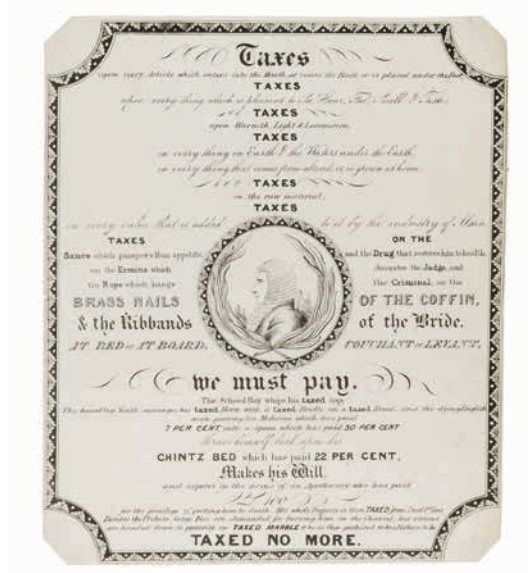 Taxes
upon every Article which enters into the Mouth or covers the Back or is placed under the Foot
TAXES
upon every thing which is pleasant to See, Hear, Feel, Smell & Taste
TAXES
upon Warmth, Light & Locomotion,
TAXES
on every thing on Earth & the Waters under the Earth,
on every thing that comes from abroad, or is grown at home.
TAXES
on the raw material,
TAXES
on every value that is added to it by the industry of Man
TAXES ON THE
Sauce which pampers Man's appetite, and the Drug that restores him to health.
on the Ermine which decorates the Judge, and
the Rope which hangs the Criminal, on the
BRASS NAILS OF THE COFFIN,
& the Ribbands of the Bride.
AT BED or AT BOARD, COUCHANT or LEVANT,
we must pay.
The School Boy whips his taxed top;
The beardless Youth manages his taxed Horse with a taxed Bridle on a taxed Road, and the dying English
man pouring his Medicine which has paid
7 PER CENT into a Spoon which has paid 30 PER CENT
throws himself back upon his
CHINTZ BED which has paid 22 PER CENT,
Makes his Will,
and expires in the arms of an Apothecary who has paid
100
for the privilege of putting him to death. His whole Property is then TAXED from
Besides the Probate, large Fees are demanded for burying him in the Chancel, his virtues
are handed down to posterity on TAXED MARBLE & he is then gathered to his Fathers to be
TAXED NO MORE.